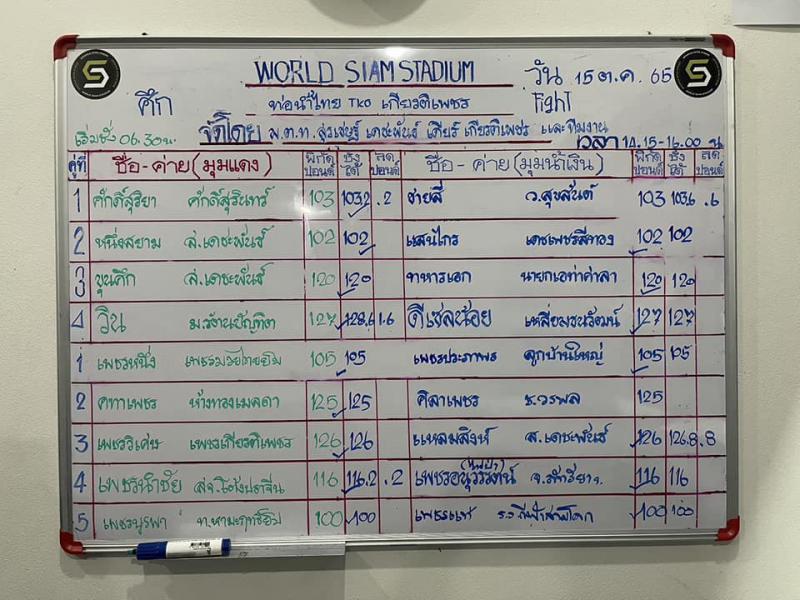 WORLD SIAM STADIUM วัน 15 ต.ค. 65
ศึก ท่อน้ำไทย TKO เกียรติเพชร Fight
เริ่มชั่ง 06.30น. จัดโดย พ.ต.ท. สุรเชษฐ์ เดชะพันธ์ เกียร์ เกียรติเพชร และทีมงาน เวลา 14.15-16.00 น
คู่ที่ ชื่อ-ค่าย (มุมแดง) พิกัดปอนด์ ชั่งได้ ลดปอนด์ ชื่อ - ค่าย (มุมน้ำเงิน) พิกัดปอนด์ ชั่งได้ ลดปอนด์
1 ศักดิ์สุริยา ศักดิ์สุรินทร์ 103 103.2 .2 ชายสี่ ว.สุขสันต์ 103 103.6 .6
2 หนึ่งสยาม ส.เดชะพันธ์ 102 102 แสนไกร เดชเพชรสีทอง 102 102
3 ขุนศึก ส.เดชะพันธ์ 120 120 ทหารเอก นายกเอท่าศาลา 120 120
4 วิน ม.รัตนบัณฑิต 127 128.6 1.6 ดีเซลน้อย เหลี่ยมธนวัฒน์ 127 127
1 เพชรหนึ่ง เพชรมวยไทยยิม 105 105 เพชรประภาพร ลูกบ้านใหญ่ 105 105
2 คทาเพชร ห้างทองเมลดา 125 125 ศิลาเพชร ช.วรพล 125
3 เพชรวิเศษ เพชรเกียรติเพชร 126 126 แหลมสิงห์ ส.เดชะพันธ์ 126 126.8 .8
4 เพชรนำชัย สจ.โต้งปราจีน 116 116.2 .2 เพชรอนุวรรตน์ 116 116
5 เพชรบูรพา 100 100 100 100